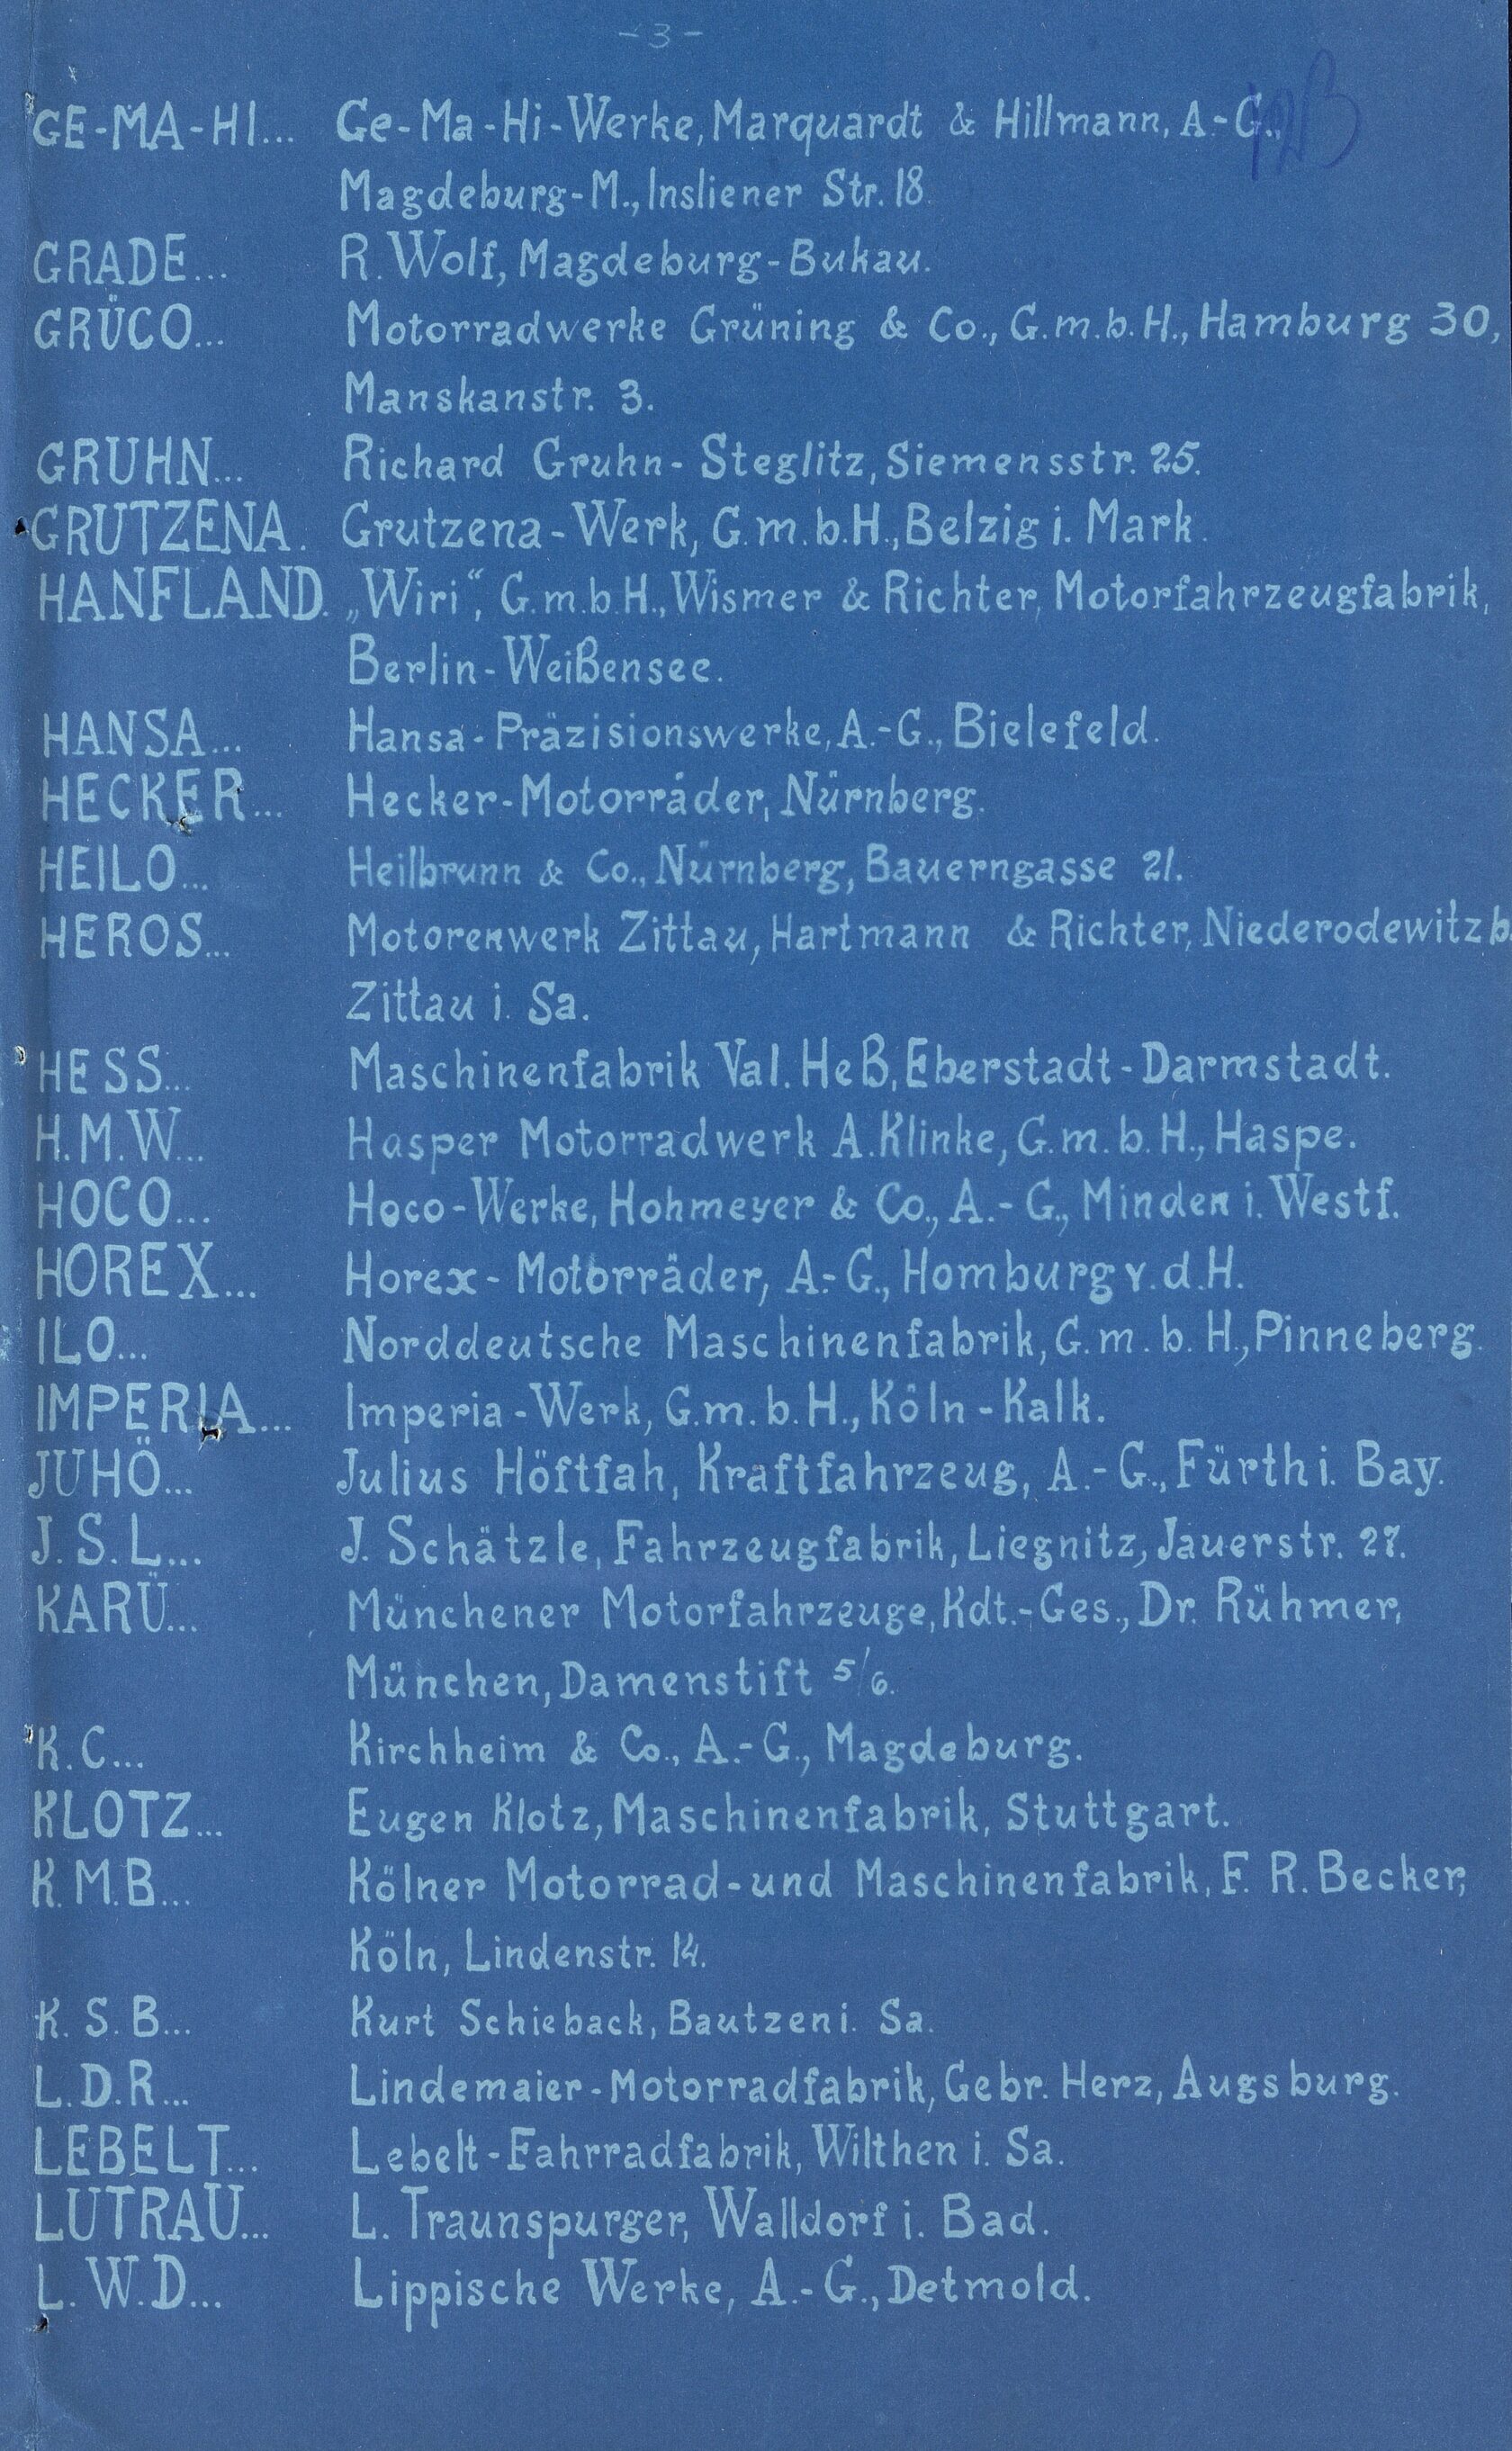 -3-
GE-MA-HI... Ge-Ma-Hi-Werke, Marquardt & Hillmann, A.-G.,
Magdeburg-M., Insliener Str. 18.
GRADE... R. Wolf, Magdeburg-Bukau.
GRÜCO... Motorradwerke Grüning & Co., G.m.b.H., Hamburg 30,
Manskanstr. 3.
GRUHN... Richard Gruhn-Steglitz, Siemensstr. 25.
GRUTZENA. Grutzena-Werk, G.m.b.H., Belzig i. Mark.
HANFLAND. „Wiri“, G.m.b.H., Wismer & Richter, Motorfahrzeugfabrik,
Berlin-Weißensee.
HANSA... Hansa-Präzisionswerke, A.-G., Bielefeld.
HECKER... Hecker-Motorräder, Nürnberg.
HEILO... Heilbrunn & Co., Nürnberg, Bauerngasse 21.
HEROS... Motorenwerk Zittau, Hartmann & Richter, Niederodewitz b.
Zittau i. Sa.
HESS... Maschinenfabrik Val. Heß, Eberstadt-Darmstadt.
H.M.W... Hasper Motorradwerk A. Klinke, G.m.b.H., Haspe.
HOCO... Hoco-Werke, Hohmeyer & Co., A.-G., Minden i. Westf.
HOREX... Horex-Motorräder, A.-G., Homburg v.d.H.
ILO... Norddeutsche Maschinenfabrik, G.m.b.H., Pinneberg.
IMPERIA... Imperia-Werk, G.m.b.H., Köln-Kalk.
JUHÖ... Julius Höftfah, Kraftfahrzeug, A.-G., Fürth i. Bay.
J.S.L... J. Schätzle, Fahrzeugfabrik, Liegnitz, Jauerstr. 27.
KARÜ... Münchener Motorfahrzeuge, Kdt.-Ges., Dr. Rühmer,
München, Damenstift 5/6.
K.C... Kirchheim & Co., A.-G., Magdeburg.
KLOTZ... Eugen Klotz, Maschinenfabrik, Stuttgart.
K.M.B... Kölner Motorrad-und Maschinenfabrik, F. R. Becker,
Köln, Lindenstr. 14.
K.S.B... Kurt Schieback, Bautzen i. Sa.
L.D.R... Lindemaier-Motorradfabrik, Gebr. Herz, Augsburg.
LEBELT... Lebelt-Fahrradfabrik, Wilthen i. Sa.
LUTRAU... L. Traunspurger, Walldorf i. Bad.
L.W.D... Lippische Werke, A.-G., Detmold.